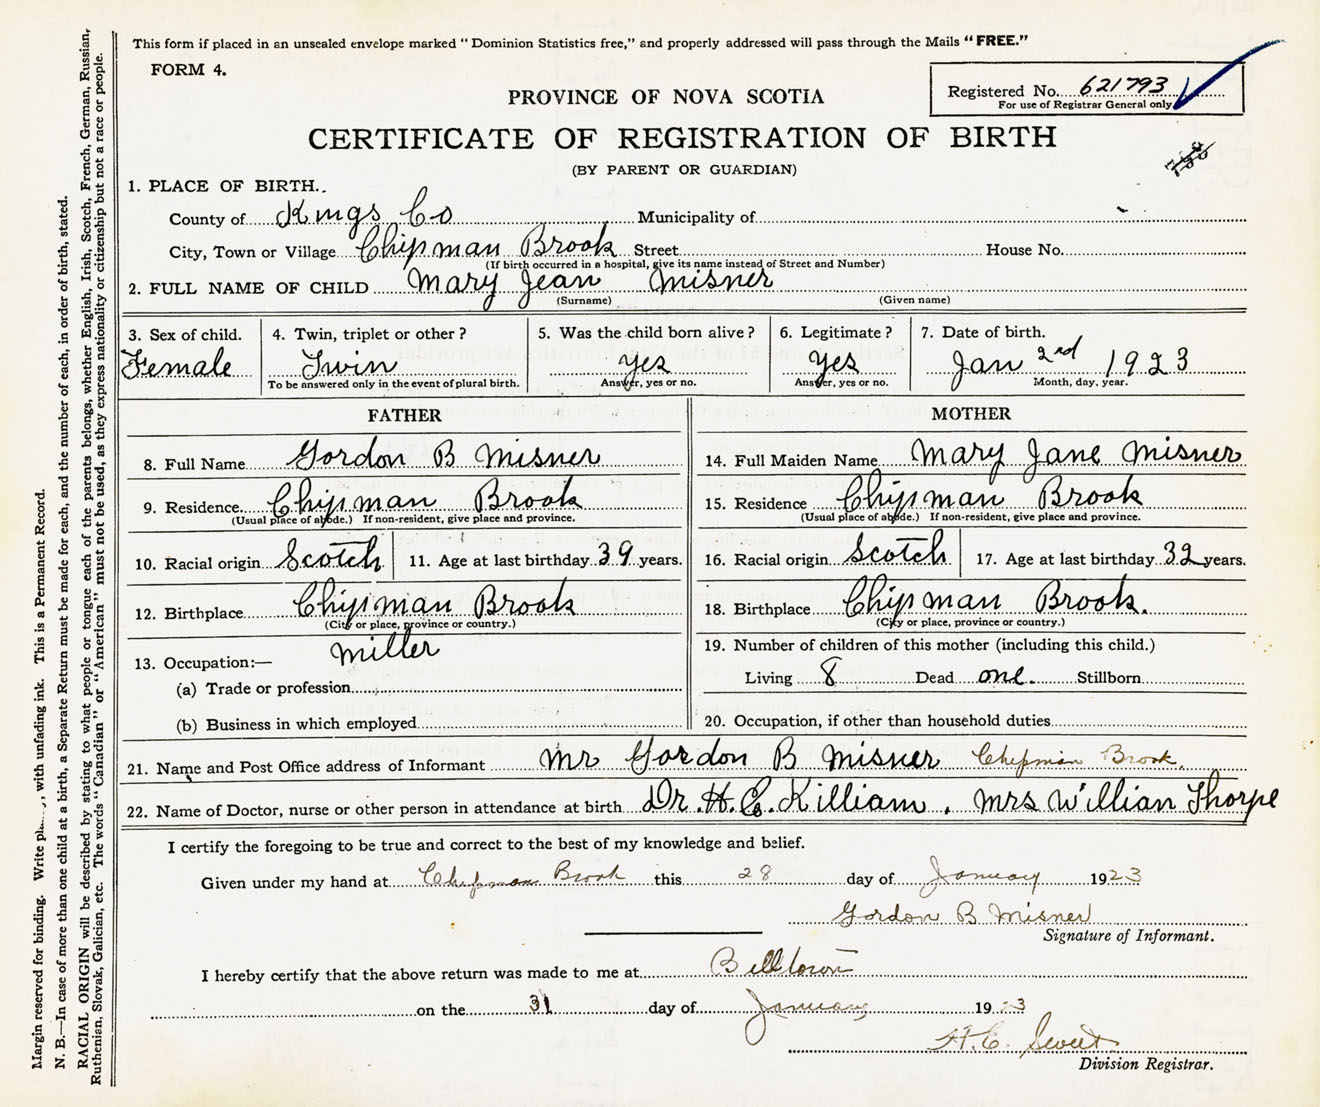 This form if placed in an unsealed envelope marked "Dominion Statistics free," and properly addressed will pass through the Mails "FREE."
FORM 4.
Registered No. 621793
For use of Registrar General only
PROVINCE OF NOVA SCOTIA
CERTIFICATE OF REGISTRATION OF BIRTH
(BY PARENT OR GUARDIAN)
1. PLACE OF BIRTH.
County of Kings Co Municipality of
City, Town or Village Chipman Brook Street House No.
(If birth occurred in a hospital, give its name instead of Street and Number)
2. FULL NAME OF CHILD Mary Jean Misner
(Surname) (Given name)
3. Sex of child. 4. Twin, triplet or other? 5. Was the child born alive? 6. Legitimate? 7. Date of birth.
Female Twin Yes Yes Jan 2nd 1923
To be answered only in the event of plural birth. Answer, yes or no. Answer, yes or no. Month, day, year.
FATHER MOTHER
8. Full Name Gordon B Misner 14. Full Maiden Name Mary Jane Misner
9. Residence Chipman Brook 15. Residence Chipman Brook
(Usual place of abode.) If non-resident, give place and province. (Usual place of abode.) If non-resident, give place and province.
10. Racial origin Scotch 11. Age at last birthday 39 years. 16. Racial origin Scotch 17. Age at last birthday 32 years.
12. Birthplace Chipman Brook 18. Birthplace Chipman Brook.
(City or place, province or country.) (City or place, province or country.)
13. Occupation:— Miller 19. Number of children of this mother (including this child.)
(a) Trade or profession Living 8 Dead one. Stillborn
(b) Business in which employed 20. Occupation, if other than household duties
21. Name and Post Office address of Informant Mr Gordon B Misner Chepman Brook.
22. Name of Doctor, nurse or other person in attendance at birth Dr. H. C. Killiam. Mrs Willian Thorpe
I certify the foregoing to be true and correct to the best of my knowledge and belief.
Given under my hand at Chepman Brook this 28 day of January 1923
Gordon B Misner
Signature of Informant.
I hereby certify that the above return was made to me at Billtown
on the 31 day of January 1923
H. C. Sweet
Division Registrar.
Margin reserved for binding. Write with unfading ink. This is a Permanent Record.
N. B.—In case of more than one child at a birth, a Separate Return must be made for each, and the number of each, in order of birth, stated.
RACIAL ORIGIN will be described by stating to what people or tongue each of the parents belongs, whether English, Irish, Scotch, French, German, Russian,
Ruthenian, Slovak, Galician, etc. The words "Canadian" or "American" must not be used, as they express nationality or citizenship but not a race or people.